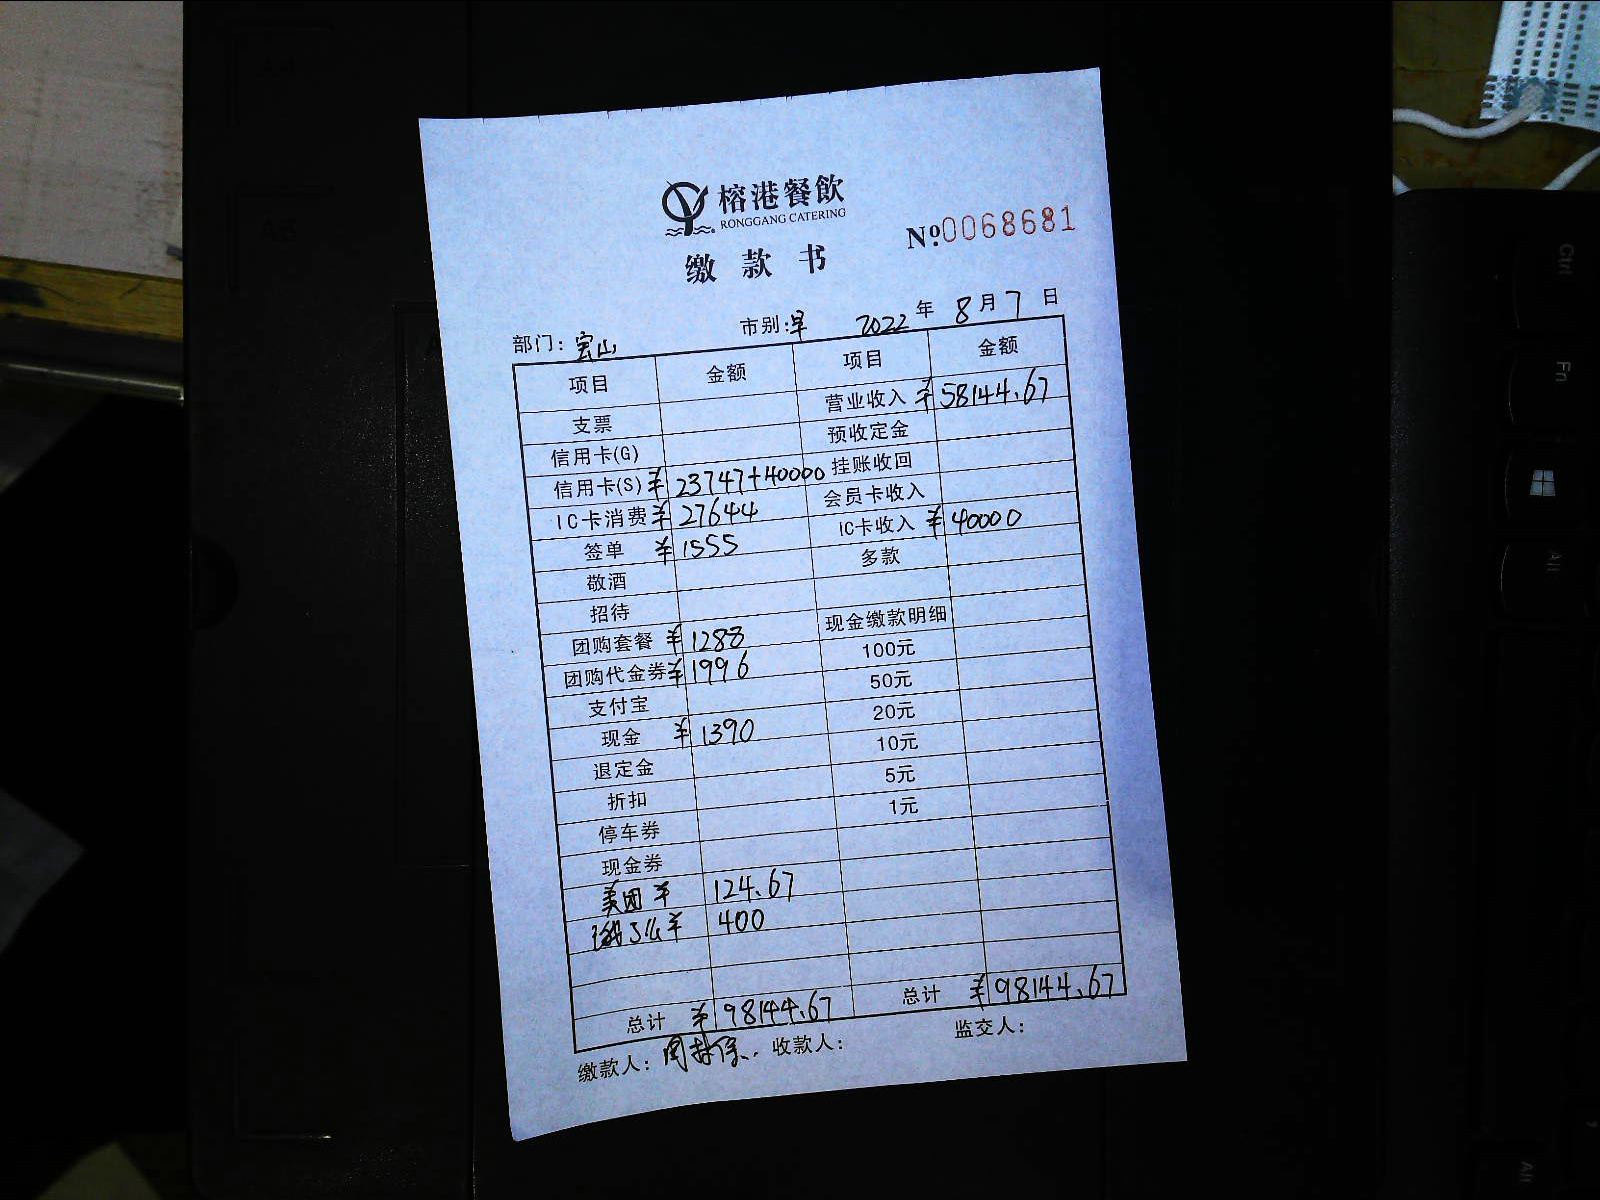 榕港餐飲
RONGGANG CATERING
缴款书 №0068681
部门：宝山 市别：早 2022年8月7日
项目 金额 项目 金额
支票 营业收入 ¥58144.67
信用卡(G) 预收定金
信用卡(S) ¥23747+40000 挂账收回
IC卡消费 ¥27644 会员卡收入
签单 ¥1555 IC卡收入 ¥40000
敬酒 多款
招待
团购套餐 ¥1288 现金缴款明细
团购代金券 ¥1996 100元
支付宝 50元
现金 ¥1390 20元
退定金 10元
折扣 5元
停车券 1元
现金券
美团 ¥124.67
饿了么 ¥400
总计 ¥98144.67 总计 ¥98144.67
缴款人： 收款人： 监交人：